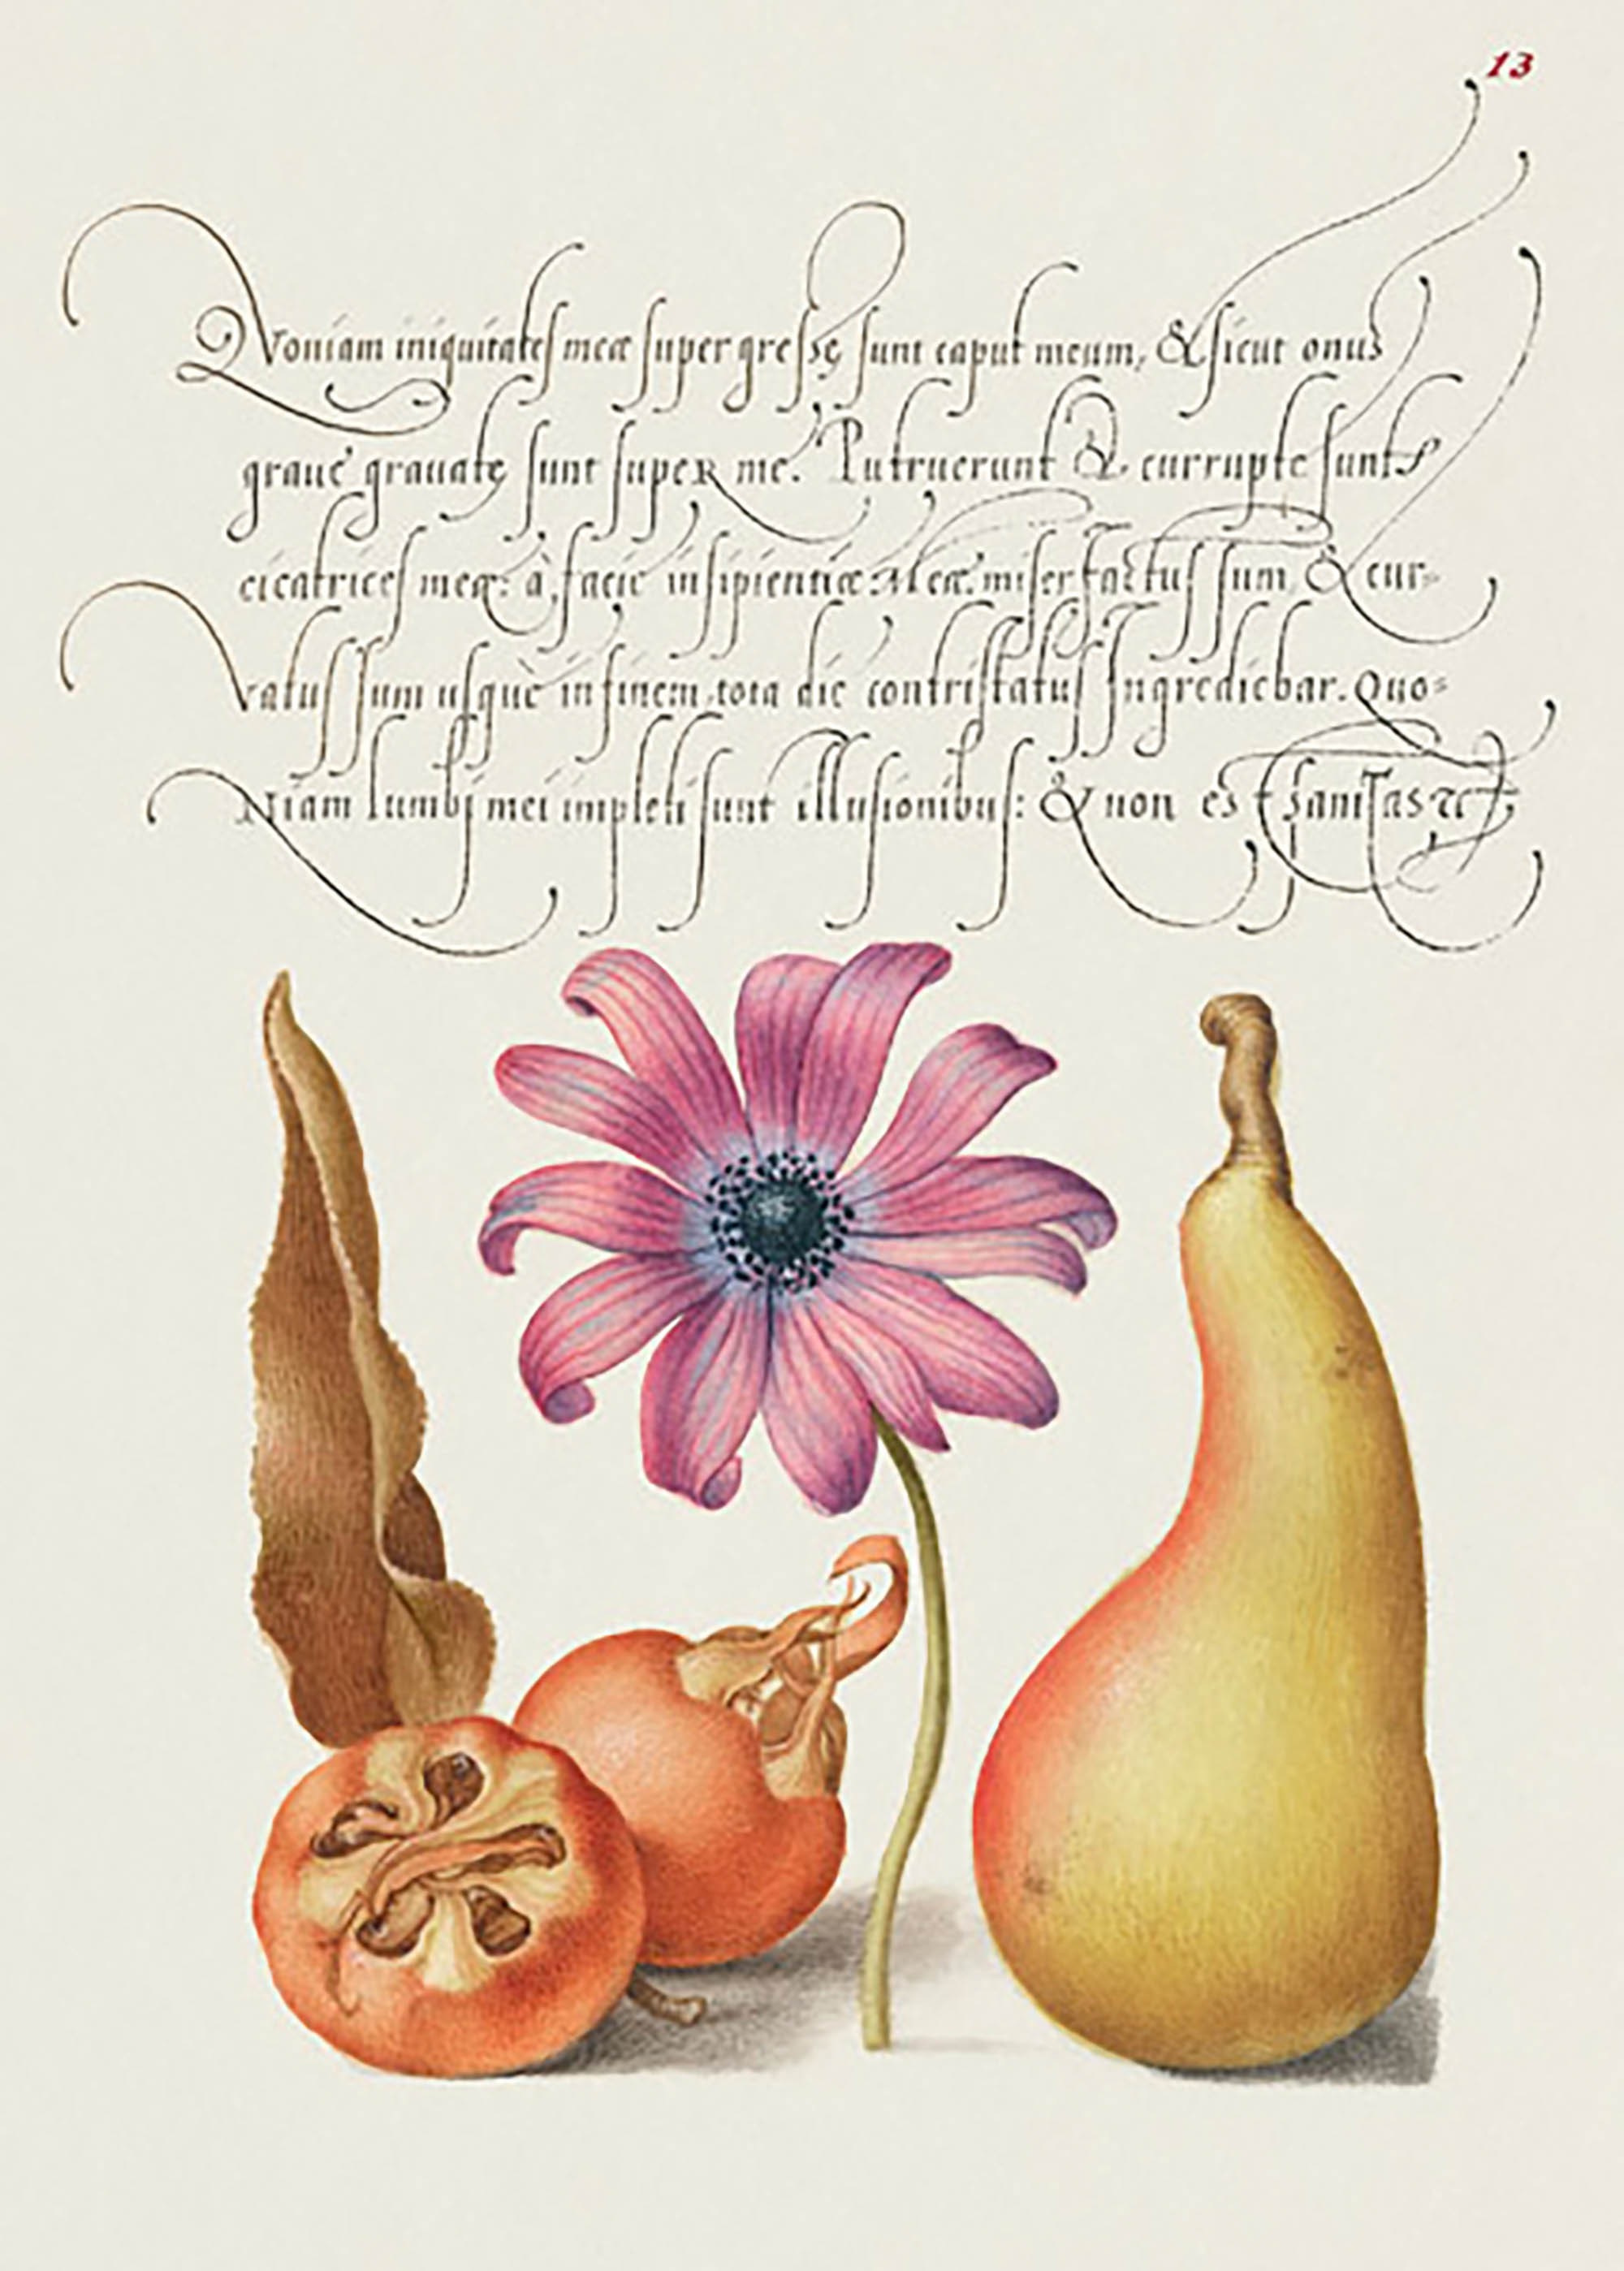 13
Quoniam iniquitates meæ supergressę sunt caput meum, & sicut onus
graue grauatę sunt super me. Putruerunt & currupte sunt
cicatrices meæ: à facie insipientiæ Meæ. miser factus sum, & cur-
vatus sum usque in finem, tota die contristatus Ingrediebar. Quo-
Niam lumbi mei impleti sunt illusionibus: & non est sanitas